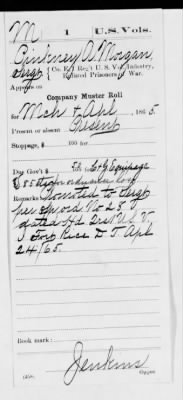 M 1 U.S. Vols.
Pinkney A. Morgan
Sergt, Co. I, 1 Reg't U.S. Vol. Infantry,
Enlisted Prisoners of War.
Appears on
Company Muster Roll
for Mch & Apl, 1865
Present or absent Present
Stoppage, $ 100 for
Due Gov't $ 100 for C & G Equipage
$ 55 for ordnance lost
Remarks: Promoted to Sergt
per Sp. ord. No 28
dated Hd. Qrs. 1st U.S.V.
Fort Rice D.T. Apl
24/65.
Book mark:
Jenkins
Copyist.